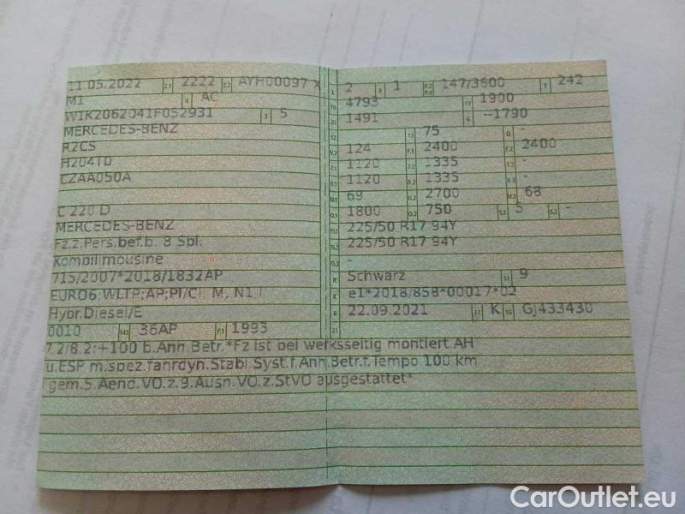 11.05.2022 2222 AYH00097 X
M1 AC
W1K2062041F052931 5
MERCEDES-BENZ
R2CS
H204T0
CZAA050A
C 220 D
MERCEDES-BENZ
Fz.z.Pers.bef.b. 8 Spl.
Kombilimousine
715/2007*2018/1832AP
EURO6;WLTP;AP;PI/CI; M, N1 I
Hybr.Diesel/E
0010 36AP 1993
2 1 147/3600 242
4793 1900
1491 --1790
75 -
124 2400 2400
1120 1335 -
1120 1335 -
69 2700 68
1800 750 5 -
225/50 R17 94Y
225/50 R17 94Y
-
Schwarz 9
e1*2018/858*00017*02
22.09.2021 K GJ433430
7.2/8.2:+100 b.Anh.Betr.*Fz ist bei werksseitig montiert.AH
u.ESP m.spez.fahrdyn.Stabi.Syst.f.Anh.Betr.f.Tempo 100 km
gem.5.Aend.VO.z.9.Ausn.VO.z.StVO ausgestattet*
CarOutlet.eu